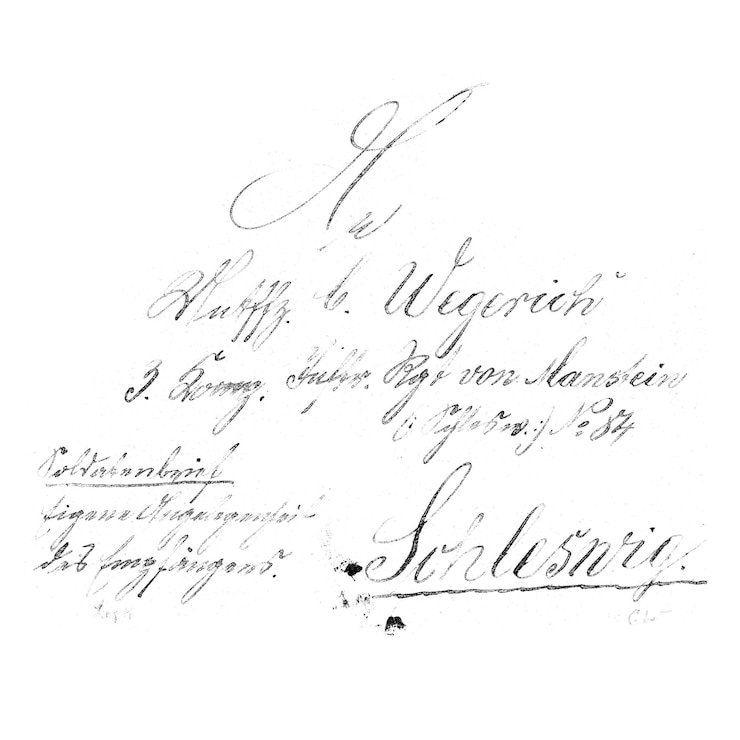 An
Untffz. C. Wegerich
3. Komp. Füsilr. Rgt von Manstein
(: Schlesw. :) No 84
Soldatenbrief
Eigene Angelegenheit
des Empfängers.
Schleswig.